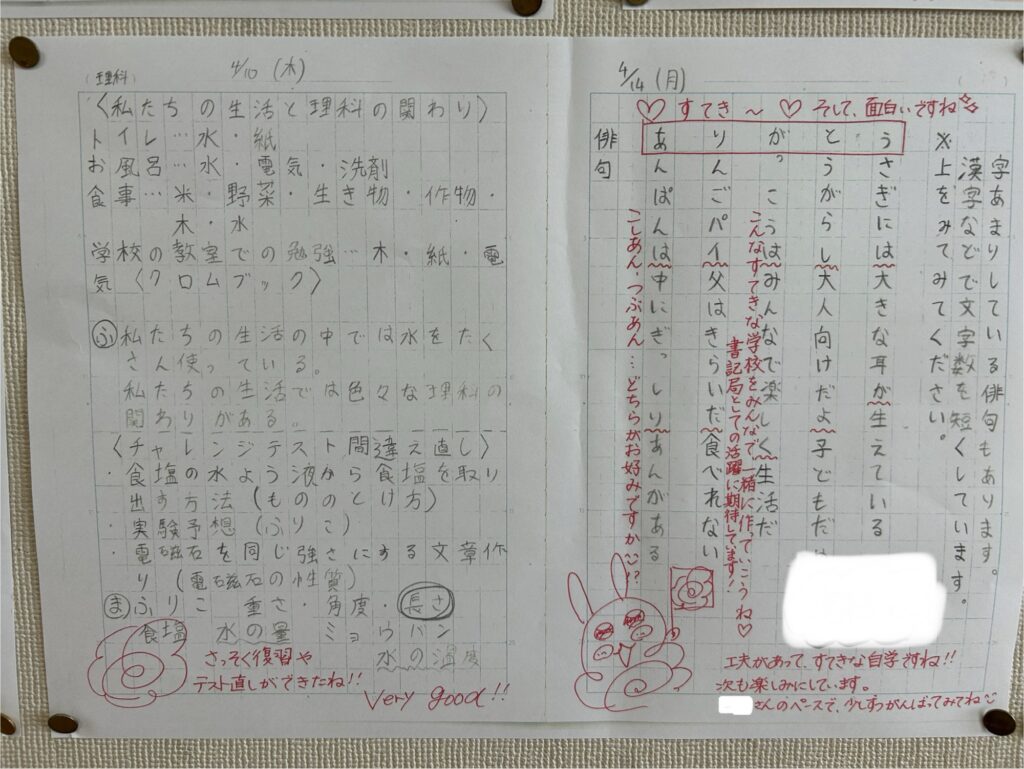 (理科)
4/10 (木)
〈私たちの生活と理科の関わり〉
トイレ…水・紙
お風呂…水・電気・洗剤
食事…米・野菜・生き物・作物・
木・水
学校の教室での勉強…木・紙・電
気〈クロムブック〉
ふ 私たちの生活の中では水をたく
さん使っている。
私たちの生活では色々な理科の
関わりがある。
〈チャレンジテスト間違え直し〉
・食塩の水よう液から食塩を取り
出す方法(もののとけ方)
・実験予想(ふりこ)
・電磁石を同じ強さにする文章作
り(電磁石の性質)
ま ふりこ 重さ・角度・長さ
食塩 水の量 ミョウバン
水の温度
さっそく復習や
テスト直しができたね!!
Very good!!
4/14 (月)
♡すてき〜♡そして、面白いですね
字あまりしている俳句もあります。
漢字などで文字数を短くしています。
※上をみてみてください。
うさぎには大きな耳が生えている
とうがらし大人向けだよ子どもだ
がっこうはみんなで楽しく生活だ
こんなすてきな学校をみんなで一緒に作っていこうね♡
書記局としての活躍に期待しています!
りんごパイ父はきらいだ食べれない
あんぱんは中にぎっしりあんがある
こしあん・つぶあん…どちらがお好みですか!?
俳句
工夫があって、すてきな自学ですね!!
次も楽しみにしています。
さんのペースで、少しずつがんばってみてね